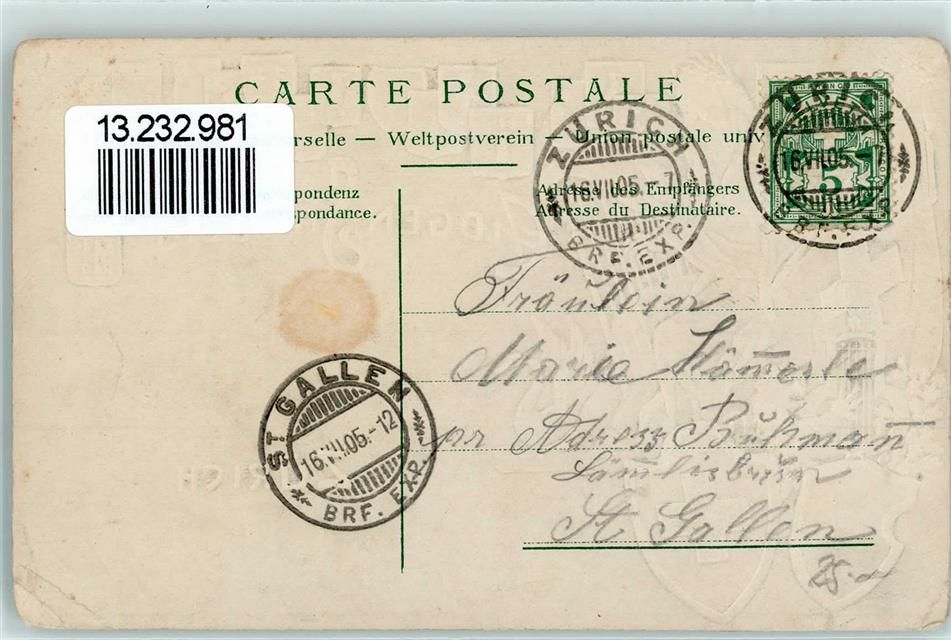 CARTE POSTALE
13.232.981
erselle — Weltpostverein — Union postale univ
spondenz
spondance.
Adresse des Empfängers
Adresse du Destinataire.
ZÜRICH
16.VII.05.-7
BRF. EXP.
ZÜRICH
16.VII.05.-7
BRF. EXP.
5
Fräulein
Marie
pr Adress
St Gallen
ST. GALLEN
16.VII.05.-12
BRF. EXP.
25.-